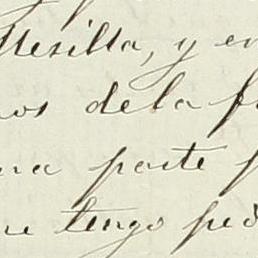 Mesilla, y en
os de la f
na parte p
ue tengo ped